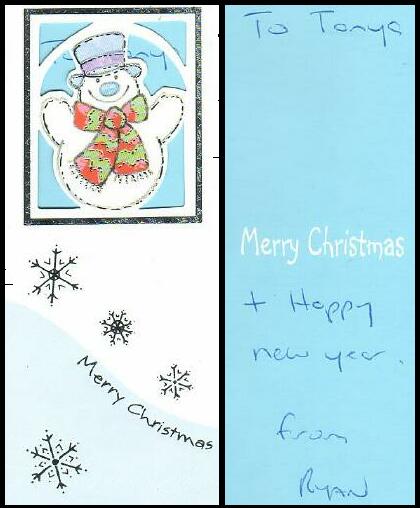 Merry Christmas
To Tonya
Merry Christmas
+ Happy
new year.
from
RYAN